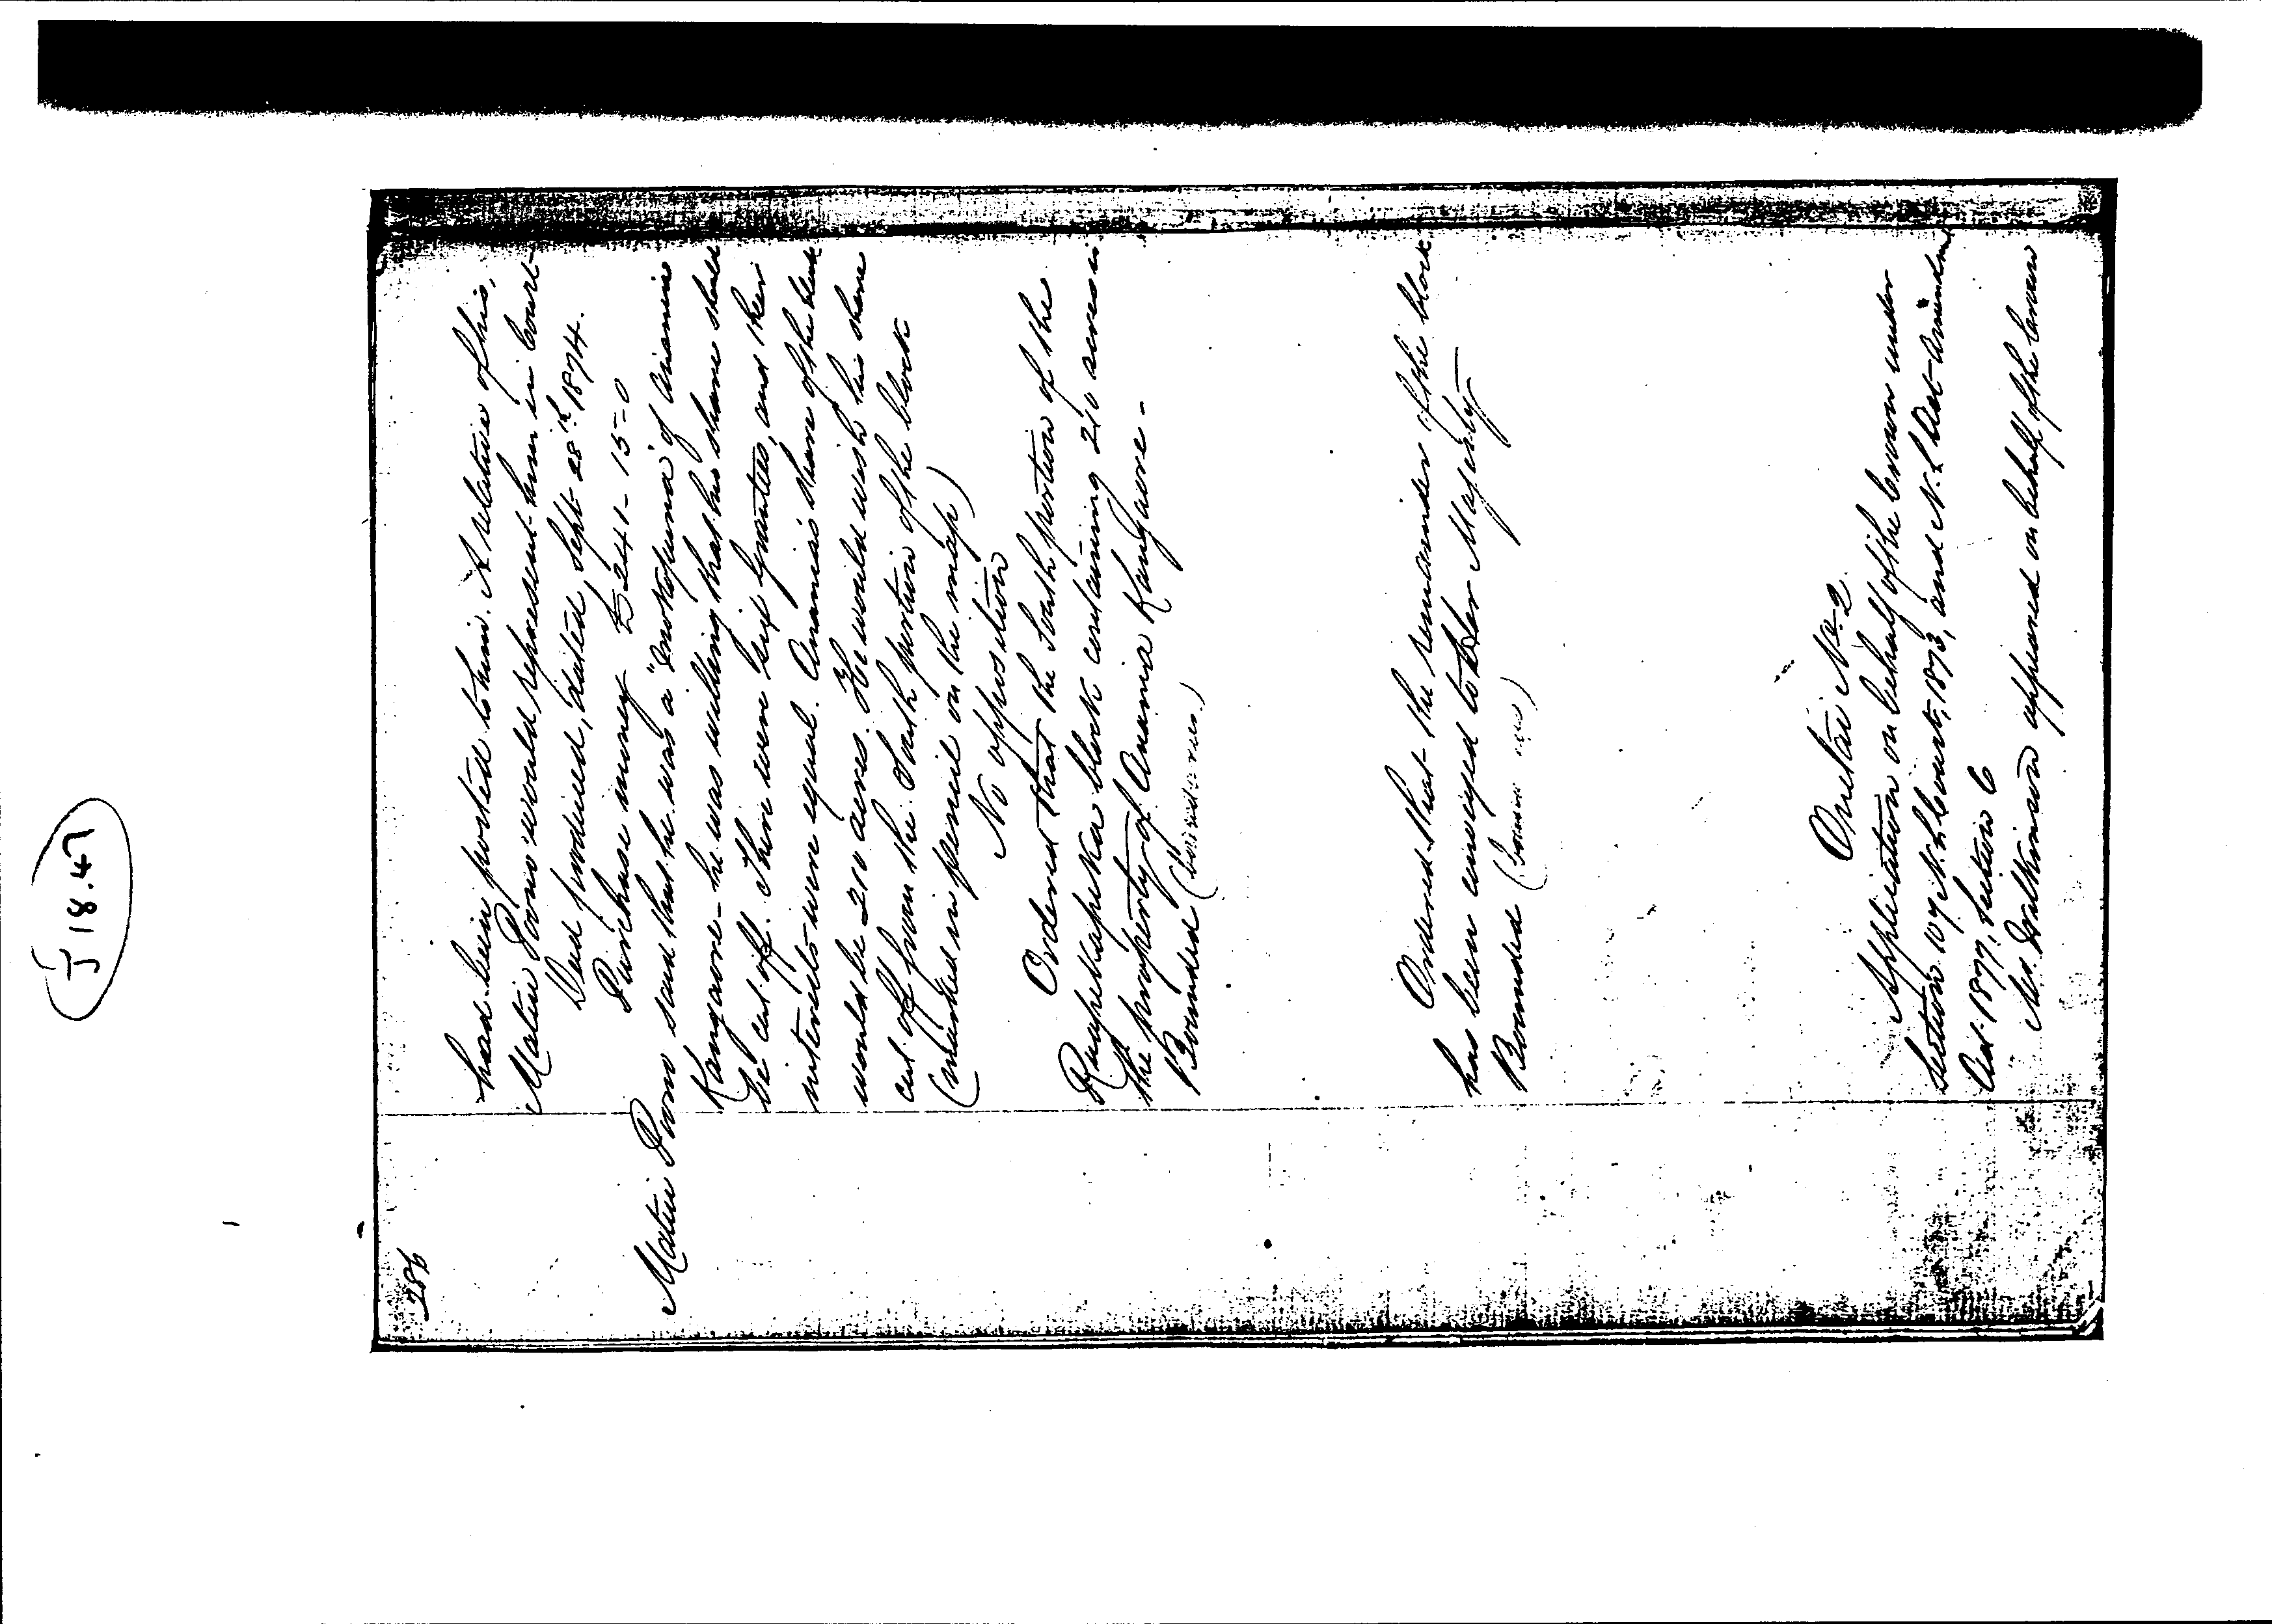 J 18.47
286
had been posted to him. A relative of his,
Matiu Pono would represent him in Court
Deed produced, dated Sept 28th 1874.
Purchase money £241-15-0
Matiu Pono said that he was a "mokopuna" of Anamia
Kangaore - he was willing that his share should
be cut off. There were six grantees, and their
interests were equal. Anamia's share of the block
would be 210 acres. He would wish his share
cut off from the South portion of the block
(marked in pencil on the map)
No opposition
Ordered that the South portion of the
block containing 210 acres is
the property of Anamia Kangaore -
Bounded (
Ordered that the remainder of the block
has been conveyed to Her Majesty
Bounded (
Oruatai No 2
Application on behalf of the Crown under
Section 107 N.L. Court, 1873, and N.L Act Amendm
Act 1877, Section 6
Mr. appeared on behalf of the Crown